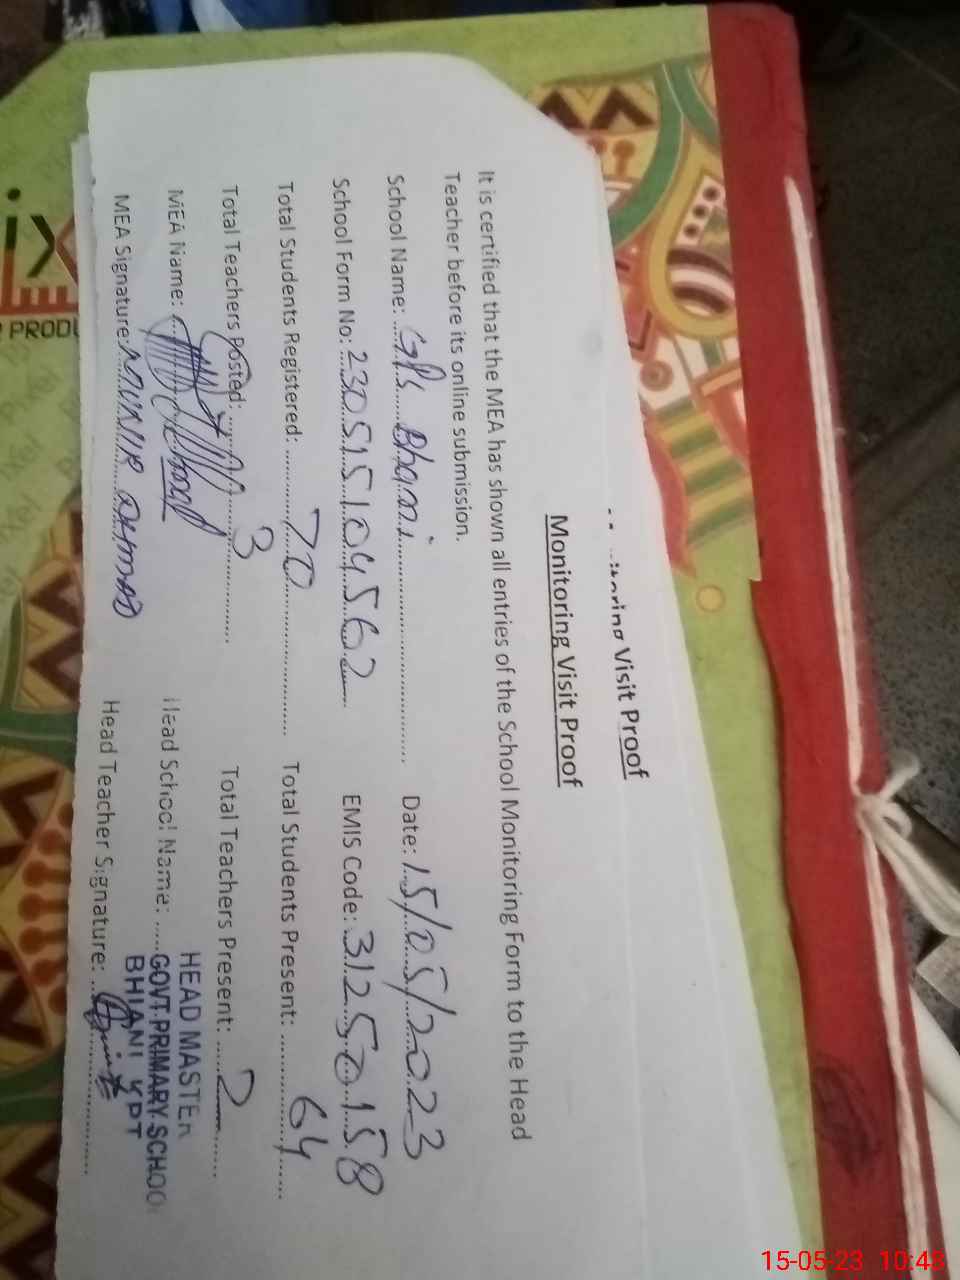 itoring Visit Proof
Monitoring Visit Proof
It is certified that the MEA has shown all entries of the School Monitoring Form to the Head
Teacher before its online submission.
School Name: GPS Bhani Date: 15/05/2023
School Form No: 230515104562 EMIS Code: 31250158
Total Students Registered: 70 Total Students Present: 64
Total Teachers Posted: 3 Total Teachers Present: 2
MEA Name: Head School Name:
HEAD MASTER
GOVT. PRIMARY SCHOO
BHIANI KPT
MEA Signature: MUNIR AHMAD Head Teacher Signature:
ix
PRODU
15-05-23 10:43